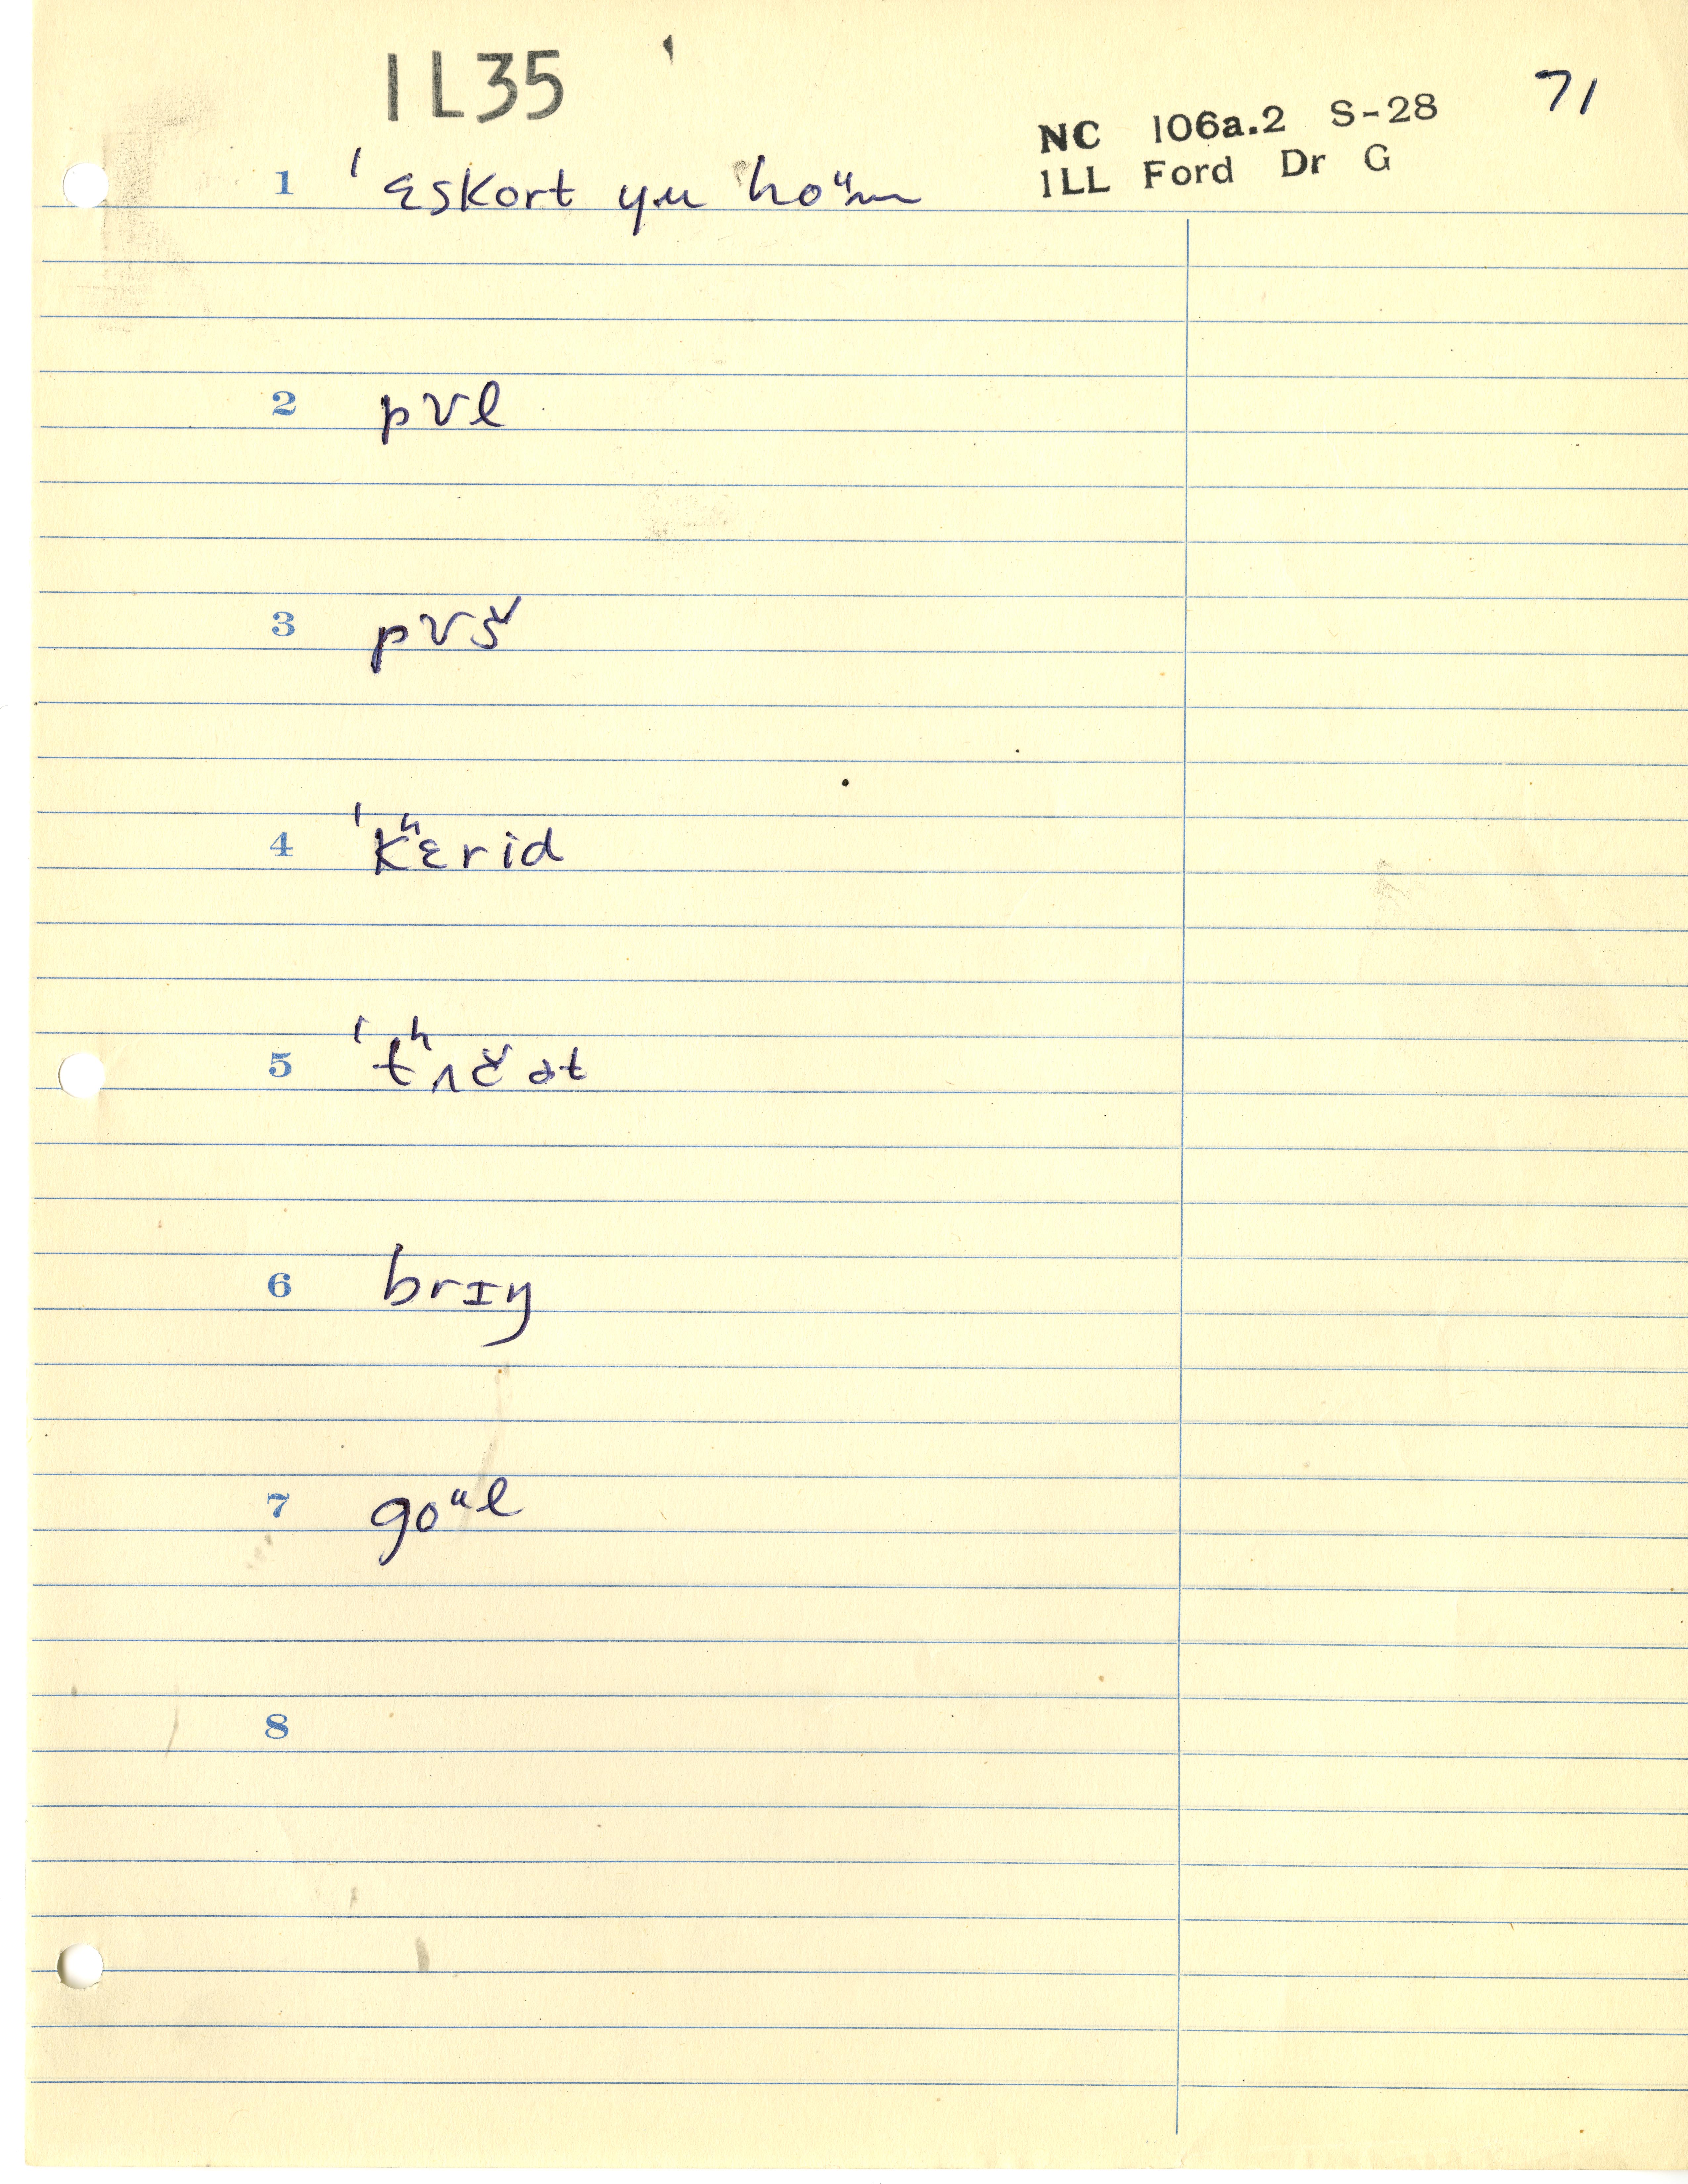 1L35
71
NC 106a.2 S-28
1LL Ford Dr G
1 ˈɛskort yu hoᵘm
2 pʊl
3 pʊš
4 ˈkʰɛrid
5 ˈtʰʌčət
6 brɪŋ
7 goᵘl
8